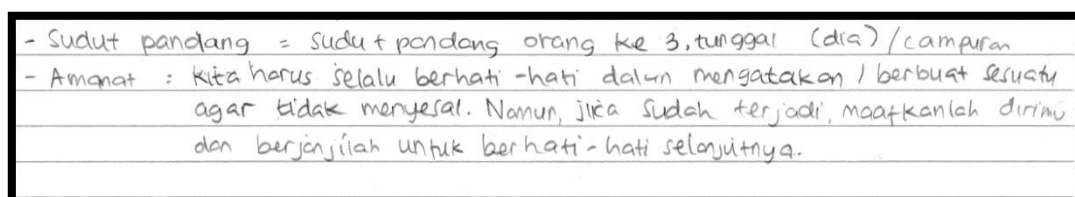 - Sudut pandang = sudut pandang orang ke 3, tunggal (dia) / campuran
- Amanat : kita harus selalu berhati-hati dalam mengatakan / berbuat sesuatu
agar tidak menyesal. Namun, jika sudah terjadi, maafkanlah dirimu
dan berjanjilah untuk berhati-hati selanjutnya.